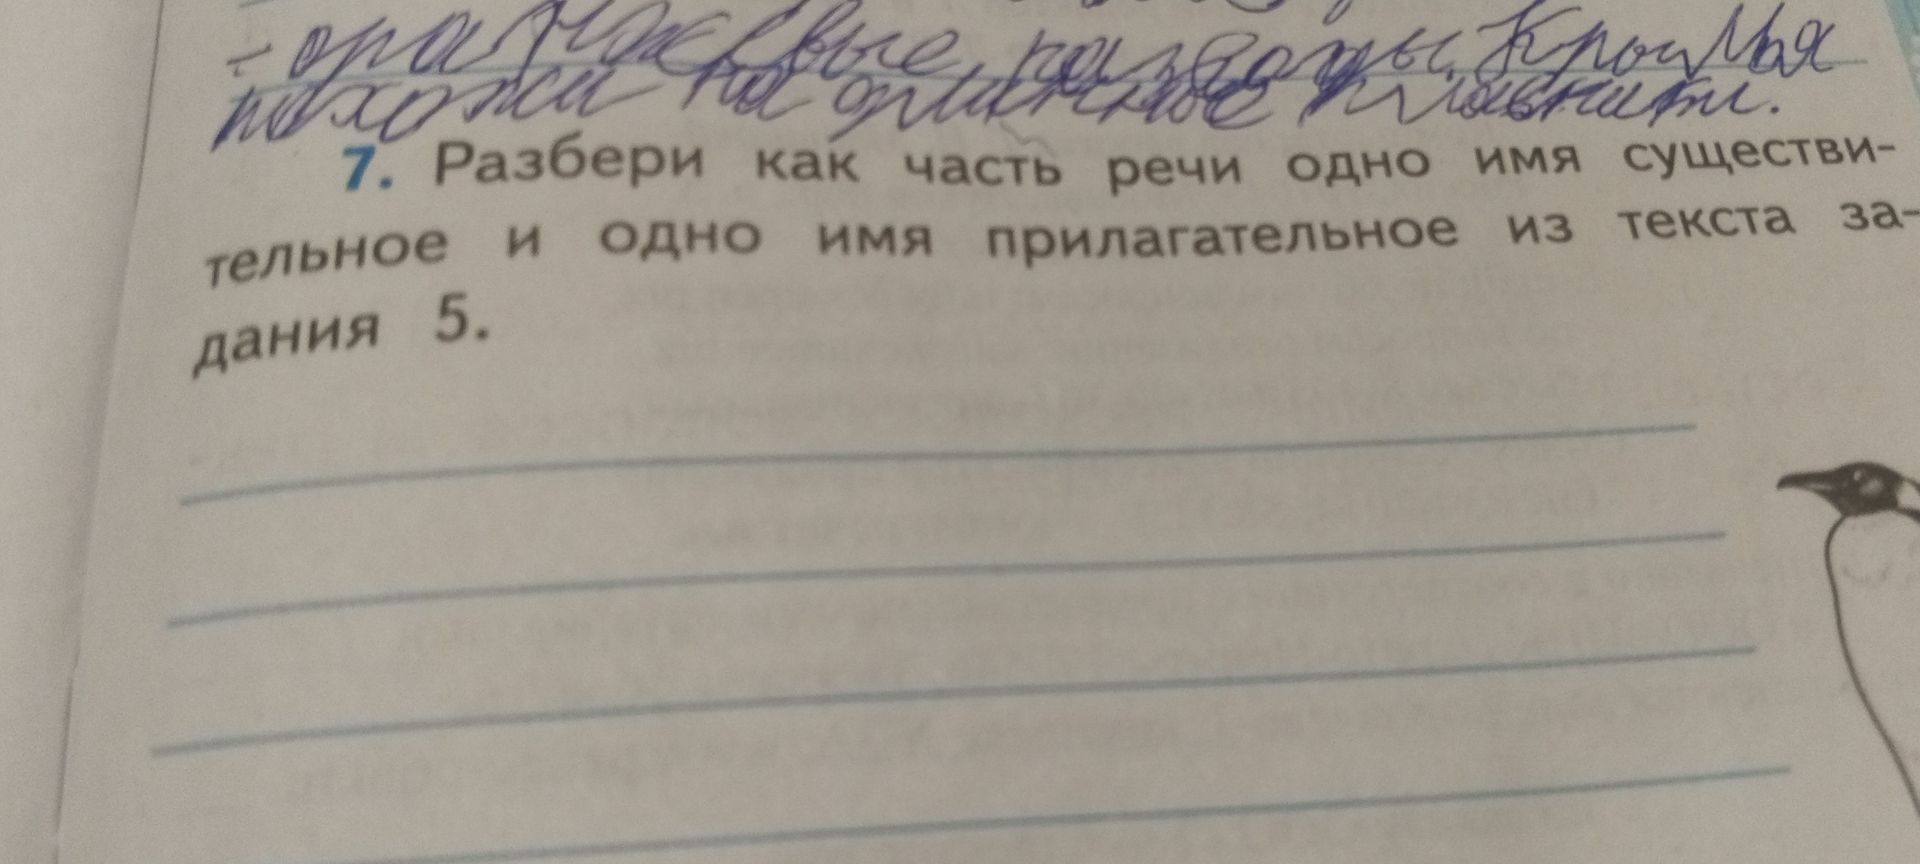 - оранжевые разводы. Крылья
похожи на длинные плавники.
7. Разбери как часть речи одно имя существи-
тельное и одно имя прилагательное из текста за-
дания 5.